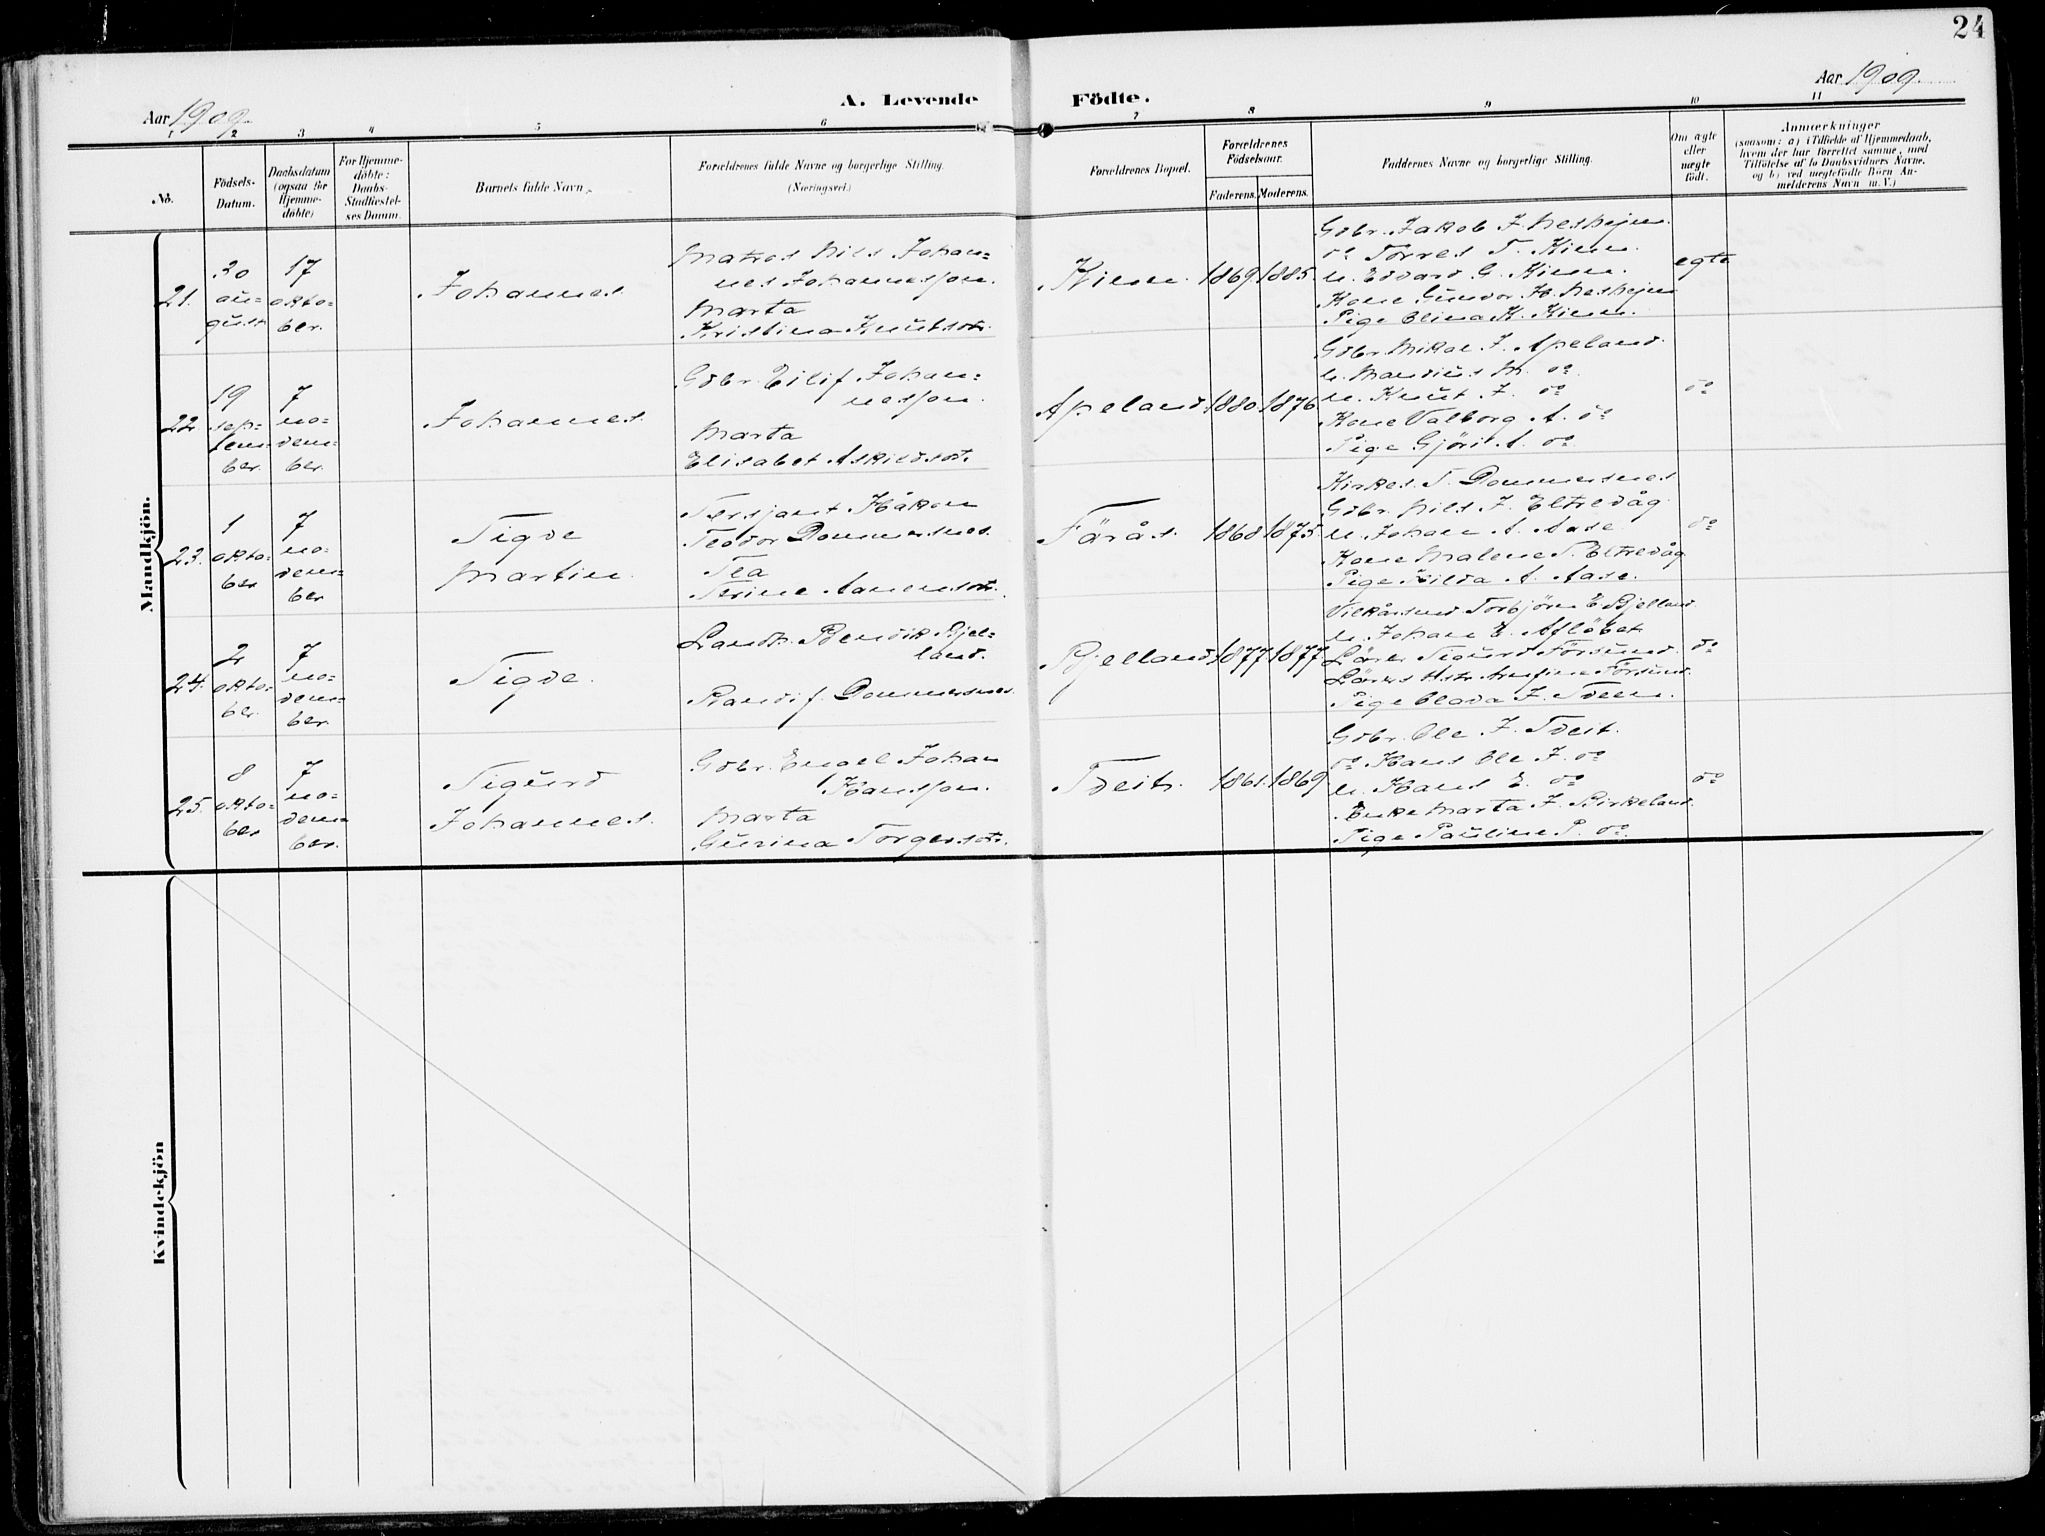 24
Aar 1909.
A. Levende
Födte.
Aar 1909.
1 2 3 4 5 6 7 8 9 10 11
No.
Födsels-
Datum.
Daabsdatum
(ogsaa for
Hjemme-
döbte)
For Hjemme-
döbte:
Daabs-
Stadfæstel-
ses Datum.
Barnets fulde Navn.
Forældrenes fulde Navne og borgerlige Stilling.
(Næringsvei.)
Forældrenes Bopæl.
Forældrenes
Födselsaar.
Faderens. Moderens.
Faddernes Navne og borgerlige Stilling.
Om ægte
eller
uægte
födt.
Anmærkninger
(saasom: a) i Tilfælde af Hjemmedaab,
hvem der har forrettet samme, med
Tilföielse af to Daabsvidners Navne,
og b) ved uægtefödte Börn An-
melderens Navn m. V.)
Mandkjön.
21.
20
au-
gust
17
okto-
ber.
Johannes.
Matros Nils Johan-
nes Johannesson.
Marta
Kristina Knutsdtr.
1869
1885.
Gdbr. Jakob J.
do Torres T.
U. Edvard G.
Kone Gunvor H.
Pige Olina K.
egte
22.
19
sep-
tem-
ber.
7
no-
vem-
ber.
Johannes.
Gdbr. Eilif Johan-
nesson.
Marta
Elisabet Askildsdtr.
Apeland.
1880.
1876
Gdbr. Mikal J. Apeland.
U. Mandius M. do
U. Knut J. do
Kone Valborg A. do
Pige Gjöri A. do
do
23.
1
okto-
ber
7
no-
vem-
ber
Sigve
Martin.
Sersjant Håkon
Teodor Dommersnes.
Tea
Serine Aanensdtr.
Färås.
1868
1875.
Kirkes. T. Dommersnes
Gdbr. Nils J. Eltrevåg
U. Johan A. Aase
Kone Malene S. Eltrevåg
Pige Hilda A. Aase.
do
24.
2
okto-
ber.
7
no-
vem-
ber.
Sigve.
Landh. Bendik Bjel-
land.
Randi f. Dommersnes.
Bjelland.
1877
1877
Vilkårsmd Torbjörn E Bjelland.
U. Johan E.
Lärer Sigurd Försund.
Försund.
Pige Olava J.
do
25.
8
okto-
ber
7
no-
vem-
ber.
Sigurd
Johannes.
Gdbr. Engel Johan
Hansson.
Marta
Gurina Torgersdtr.
Tveit.
1861.
1869
Gdbr. Ole J. Tveit.
do Hans Ole J. do
U. Hans E. do
Enke Marta J. Birkeland.
Pige Pauline P. do.
do
Kvindekjön